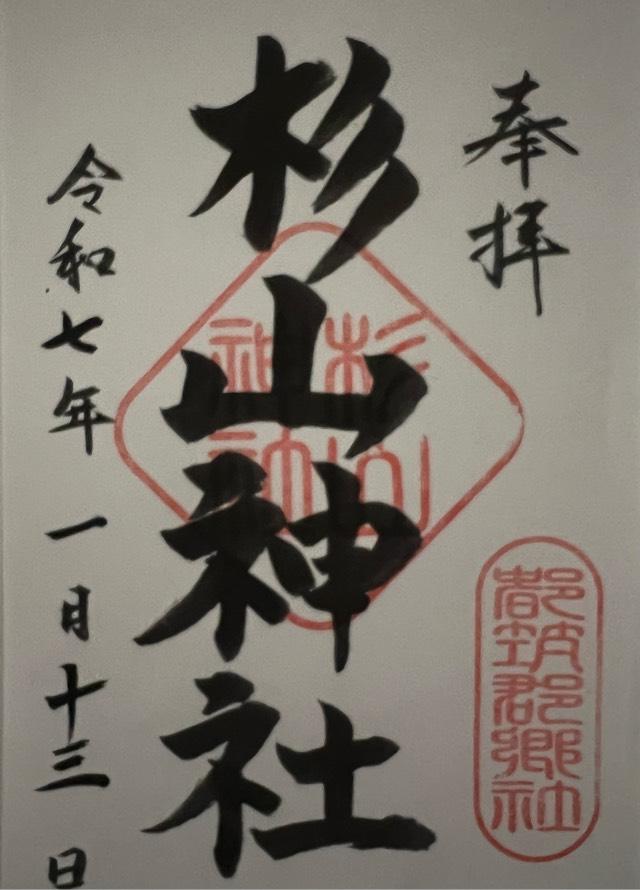 奉拝
都筑郡郷社
杉山神社
杉山
神社
令和七年一月十三日